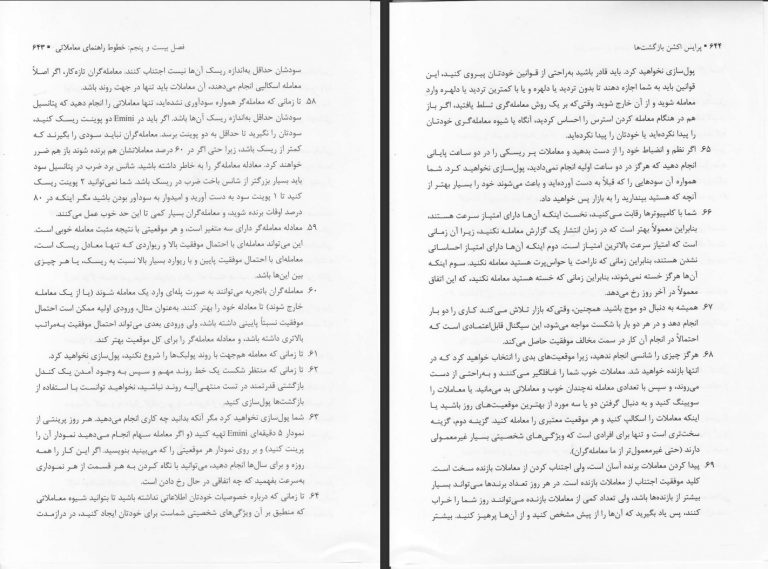 فصل بیست و پنجم: خطوط راهنمای معاملاتی ▪ ۶۴۳
سودشان حداقل به‌اندازه ریسک آن‌ها نیست اجتناب کنند. معامله‌گران تازه‌کار، اگر اصلاً
معامله اسکالپی انجام می‌دهند، آن معاملات باید تنها در جهت روند باشد.
۵۸. تا زمانی که معامله‌گر همواره سودآوری نشده‌اید، تنها معاملاتی را انجام دهید که پتانسیل
سودشان حداقل به‌اندازه ریسک آن‌ها باشد. اگر باید در Emini دو پوینت ریسک کنید،
سودتان را نگیرید تا حداقل به دو پوینت برسد. معامله‌گران نباید سودی را بگیرند که
کمتر از ریسک باشد، زیرا حتی اگر در ۶۰ درصد معاملاتشان هم برنده شوند باز هم ضرر
خواهند کرد. معادله معامله‌گر را به خاطر داشته باشید. شانس برد ضرب در پتانسیل سود
باید بسیار بزرگ‌تر از شانس باخت ضرب در ریسک باشد. شما نمی‌توانید ۲ پوینت ریسک
کنید تا ۱ پوینت سود به دست آورید و امیدوار به سودآور بودن باشید مگر اینکه در ۸۰
درصد اوقات برنده شوید، و معامله‌گران بسیار کمی تا این حد خوب عمل می‌کنند.
۵۹. معادله معامله‌گر دارای سه متغیر است، و هر موقعیتی با نتیجه مثبت معامله خوبی است.
این می‌تواند معامله‌ای با احتمال موفقیت بالا و ریواردی که تنها معادل ریسک است،
معامله‌ای با احتمال موفقیت پایین و با ریوارد بسیار بالا نسبت به ریسک، یا هر چیزی
بین این‌ها باشد.
۶۰. معامله‌گران باتجربه می‌توانند به صورت پله‌ای وارد یک معامله شوند (یا از یک معامله
خارج شوند) تا معادله خود را بهتر کنند. به‌عنوان مثال، ورودی اولیه ممکن است احتمال
موفقیت نسبتاً پایینی داشته باشد، ولی ورودی بعدی می‌تواند احتمال موفقیت به‌مراتب
بالاتری داشته باشد، و معادله معامله‌گر را برای کل موقعیت بهتر کند.
۶۱. تا زمانی که معامله هم‌جهت با روند پولبک‌ها را شروع نکنید، پول‌سازی نخواهید کرد.
۶۲. تا زمانی که منتظر شکست یک خط روند مهم و سپس به وجود آمدن یک کندل
بازگشتی قدرتمند در تست منتهی‌الیه روند نباشید، نخواهید توانست با استفاده از
بازگشت‌ها پول‌سازی کنید.
۶۳. شما پول‌سازی نخواهید کرد مگر آنکه بدانید چه کاری انجام می‌دهید. هر روز پرینتی از
نمودار ۵ دقیقه‌ای Emini تهیه کنید (و اگر معامله سهام انجام می‌دهید نمودار آن را
پرینت کنید) و بر روی نمودار هر موقعیتی را که می‌بینید بنویسید. اگر این کار را همه
روزه و برای سال‌ها انجام دهید، می‌توانید با نگاه کردن به هر قسمت از هر نموداری
به‌سرعت بفهمید که چه اتفاقی در حال رخ دادن است.
۶۴. تا زمانی که درباره خصوصیات خودتان اطلاعاتی نداشته باشید تا بتوانید شیوه معاملاتی
که منطبق بر آن ویژگی‌های شخصیتی شماست برای خودتان ایجاد کنید، در درازمدت
۶۴۴ ▪ پرایس اکشن بازگشت‌ها
پول‌سازی نخواهید کرد. باید قادر باشید به‌راحتی از قوانین خودتان پیروی کنید، این
قوانین باید به شما اجازه دهند تا بدون تردید یا دلهره و یا با کمترین تردید یا دلهره وارد
معامله شوید و از آن خارج شوید. وقتی‌که بر یک روش معامله‌گری تسلط یافتید، اگر باز
هم در هنگام معامله کردن استرس را احساس کردید، آنگاه یا شیوه معامله‌گری خودتان
را پیدا نکرده‌اید یا خودتان را پیدا نکرده‌اید.
۶۵. اگر نظم و انضباط خود را از دست بدهید و معاملات پر ریسکی را در دو ساعت پایانی
انجام دهید که هرگز در دو ساعت اولیه انجام نمی‌دادید، پول‌سازی نخواهید کرد. شما
همواره آن سودهایی را که قبلاً به دست آورده‌اید و باعث می‌شوند خود را بسیار بهتر از
آنچه که هستید بپندارید را به بازار پس خواهید داد.
۶۶. شما با کامپیوترها رقابت می‌کنید، نخست اینکه آن‌ها دارای امتیاز سرعت هستند،
بنابراین معمولاً بهتر است که در زمان انتشار یک گزارش معامله نکنید، زیرا آن زمانی
است که امتیاز سرعت بالاترین امتیاز است. دوم اینکه آن‌ها دارای امتیاز احساساتی
نشدن هستند، بنابراین زمانی که ناراحت یا حواس‌پرت هستید معامله نکنید. سوم اینکه
آن‌ها هرگز خسته نمی‌شوند، بنابراین زمانی که خسته هستید معامله نکنید، که این اتفاق
معمولاً در آخر روز رخ می‌دهد.
۶۷. همیشه به دنبال دو موج باشید. همچنین، وقتی‌که بازار تلاش می‌کند کاری را دو بار
انجام دهد و در هر دو بار با شکست مواجه می‌شود، این سیگنال قابل‌اعتمادی است که
احتمالاً در انجام آن کار در سمت مخالف موفقیت حاصل می‌کند.
۶۸. هرگز چیزی را شانسی انجام ندهید، زیرا موقعیت‌های بدی را انتخاب خواهید کرد که در
انتها بازنده خواهید شد. معاملات خوب شما را غافلگیر می‌کنند و به‌راحتی از دست
می‌روند، و سپس با تعدادی معامله نه‌چندان خوب و معاملاتی بد می‌مانید. یا معاملات را
سویینگ کنید و به دنبال گرفتن دو یا سه مورد از بهترین موقعیت‌های روز باشید یا
اینکه معاملات را اسکالپ کنید و هر موقعیت معتبری را معامله کنید. گزینه دوم، گزینه
سخت‌تری است و تنها برای افرادی است که ویژگی‌های شخصیتی بسیار غیرمعمولی
دارند (حتی غیرمعمول‌تر از ما معامله‌گران).
۶۹. پیدا کردن معاملات برنده آسان است، ولی اجتناب کردن از معاملات بازنده سخت است.
کلید موفقیت اجتناب از معاملات بازنده است. در هر روز تعداد برندها می‌تواند بسیار
بیشتر از بازنده‌ها باشد، ولی تعداد کمی از معاملات بازنده می‌توانند روز شما را خراب
کنند، پس یاد بگیرید که آن‌ها را از پیش مشخص کنید و از آن‌ها پرهیز کنید. بیشتر